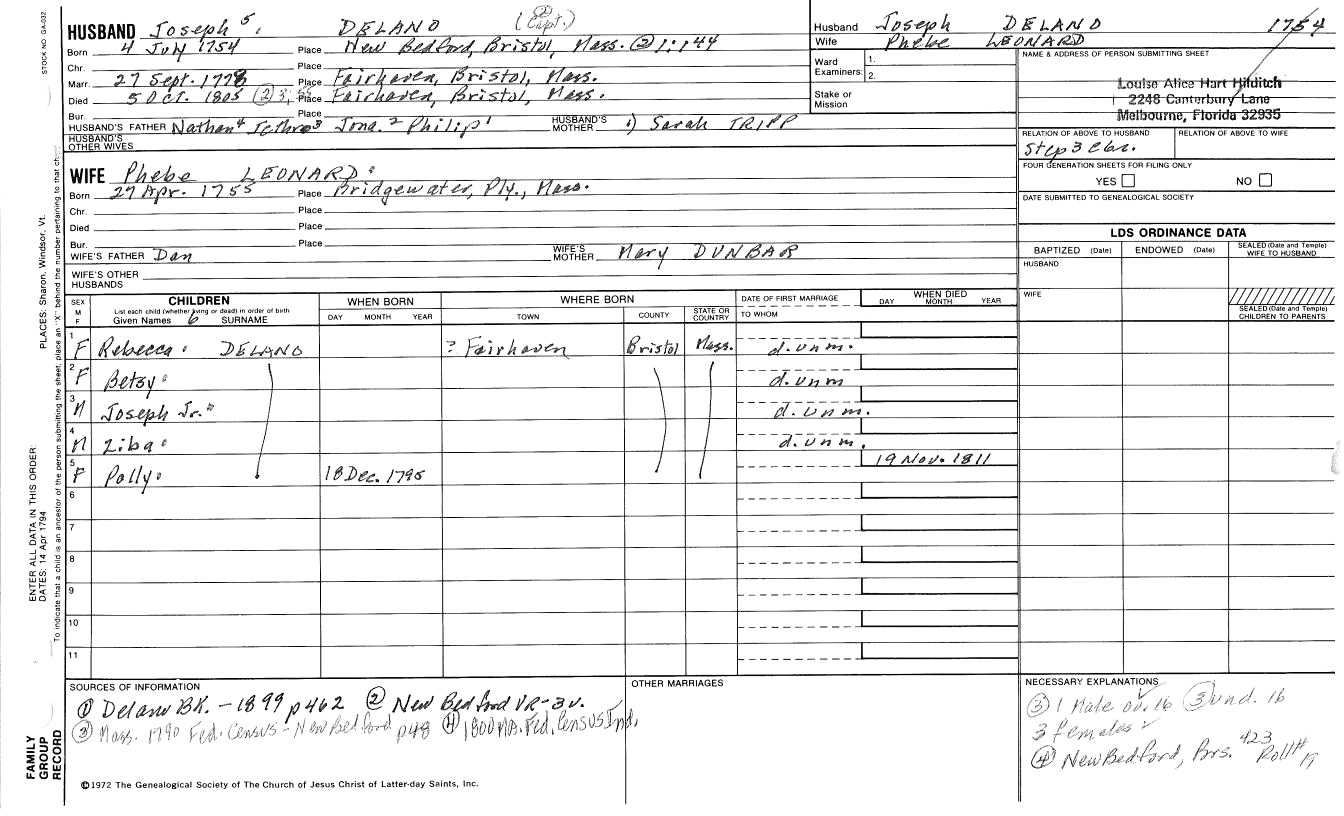 STOCK NO. GA-032
PLACES: Sharon, Windsor, Vt.
ENTER ALL DATA IN THIS ORDER:
DATES: 14 Apr 1794
To indicate that a child is an ancestor of the person submitting the sheet, place an "X" behind the number pertaining to that ch
FAMILY GROUP RECORD
HUSBAND Joseph 5 DELANO (Capt.)
Born 4 July 1754 Place New Bedford, Bristol, Mass. ② 1:144
Chr. Place
Marr. 27 Sept. 1778 Place Fairhaven, Bristol, Mass.
Died 5 Oct. 1805 Place Fairhaven, Bristol, Mass.
Bur. Place
HUSBAND'S FATHER Nathan 4 Jethro 3 Jona. 2 Philip 1 HUSBAND'S MOTHER 1) Sarah TRIPP
HUSBAND'S OTHER WIVES
WIFE Phebe LEONARD
Born 27 Apr. 1755 Place Bridgewater, Ply., Mass.
Chr. Place
Died Place
Bur. Place
WIFE'S FATHER Dan WIFE'S MOTHER Mary DUNBAR
WIFE'S OTHER HUSBANDS
Husband Joseph DELANO 1754
Wife Phebe LEONARD
Ward Examiners: 1. 2.
Stake or Mission
NAME & ADDRESS OF PERSON SUBMITTING SHEET
Louise Alice Hart Hilditch
2248 Canterbury Lane
Melbourne, Florida 32935
RELATION OF ABOVE TO HUSBAND RELATION OF ABOVE TO WIFE
Step 3
FOUR GENERATION SHEETS FOR FILING ONLY
YES NO
DATE SUBMITTED TO GENEALOGICAL SOCIETY
LDS ORDINANCE DATA
BAPTIZED (Date) ENDOWED (Date) SEALED (Date and Temple) WIFE TO HUSBAND
HUSBAND
WIFE
SEALED (Date and Temple) CHILDREN TO PARENTS
SEX M F CHILDREN WHEN BORN WHERE BORN DATE OF FIRST MARRIAGE WHEN DIED
List each child (whether living or dead) in order of birth DAY MONTH YEAR
Given Names 6 SURNAME DAY MONTH YEAR TOWN COUNTY STATE OR COUNTRY TO WHOM
1 F Rebecca DELANO ? Fairhaven Bristol Mass. d. unm.
2 F Betsy d. unm
3 M Joseph Jr. d. unm.
4 M Ziba d. unm.
5 F Polly 18 Dec. 1795 19 Nov. 1811
6
7
8
9
10
11
SOURCES OF INFORMATION
① Delano BK. - 1899 p462 ② New Bedford VR - 3v.
③ Mass. 1790 Fed. Census - New Bedford p48 ④ 1800 MA. Fed. Census Ind.
OTHER MARRIAGES
NECESSARY EXPLANATIONS
③ 1 Male ov. 16 3 und. 16
3 females
④ New Bedford, Brs. 423 Roll# 19
©1972 The Genealogical Society of The Church of Jesus Christ of Latter-day Saints, Inc.